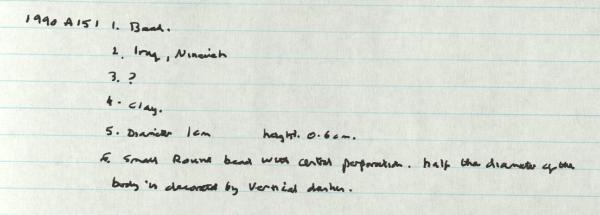 1990 A151 1. Bead.
2. Iraq, Nineveh
3. ?
4. Clay.
5. Diameter 1cm height. 0.6cm.
6. Small Round bead with central perforation. half the diameter of the
body is decorated by vertical dashes.